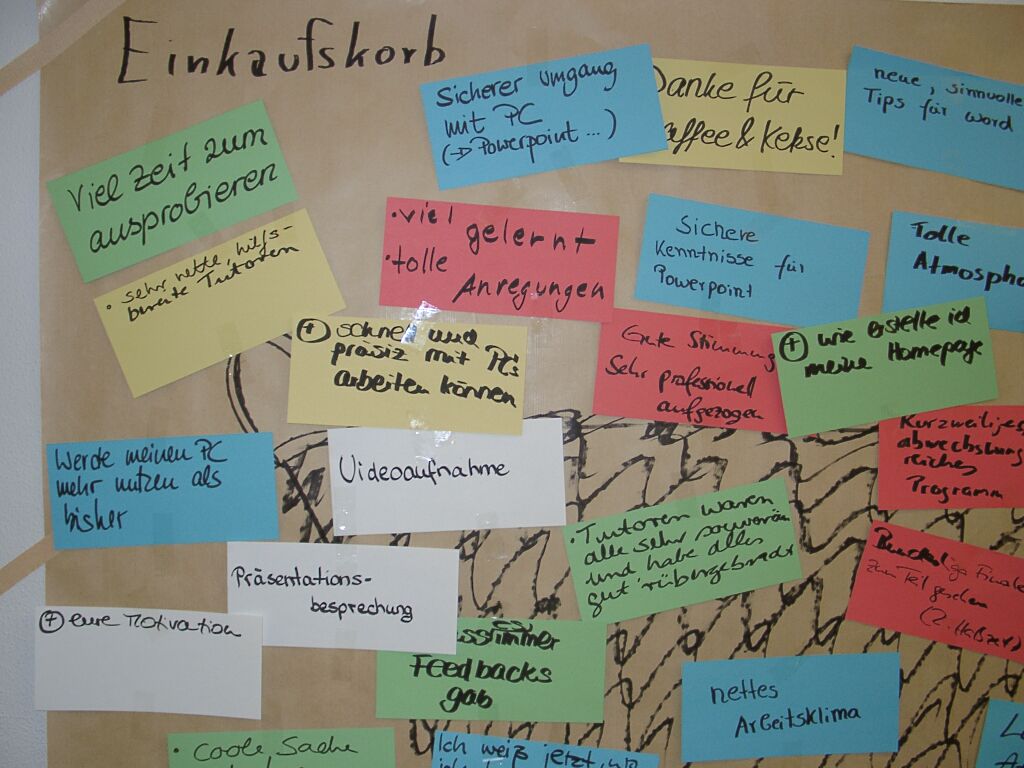 Einkaufskorb
Viel Zeit zum
ausprobieren
Sicherer Umgang
mit PC
(→ Powerpoint ...)
Danke für
Kaffee & Kekse!
neue, sinnvolle
Tips für Word
• sehr nette, hilfs-
bereite Tutoren
• viel gelernt
• tolle
Anregungen
Sichere
Kenntnisse für
Powerpoint
Tolle
Atmosphä
⊕ schnell und
präsiz mit PC's
arbeiten können
Gute Stimmung
Sehr professionell
aufgezogen
⊕ wie erstelle ich
meine Homepage
Kurzweiliges
abwechslung
reiches
Programm
Werde meinen PC
mehr nutzen als
bisher
Videoaufnahme
• Tutoren waren
alle sehr souverän
und habe alles
gut 'rübergebracht
Bundesliga Finale
zum Teil gesehen
(2. Halbzeit)
Präsentations-
besprechung
⊕ eure Motivation
Feedbacks
gab
nettes
Arbeitsklima
• coole Sache
Ich weiß jetzt, wo